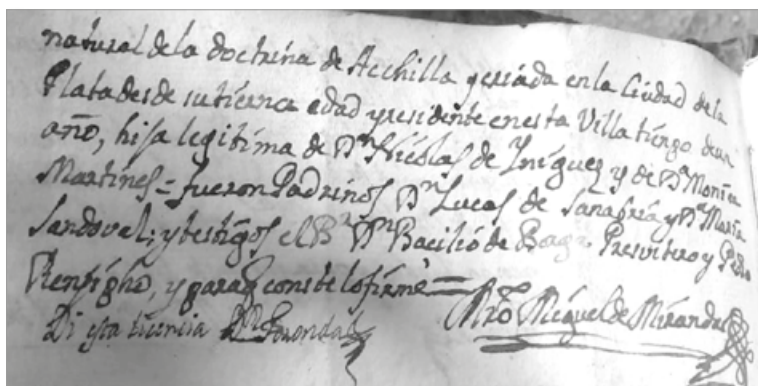 natural de la doctrina de Acchilla y criada en la Ciudad de la
Plata desde su tierna edad y residente en esta Villa tiẽpo de un
año, hija legitima de Dⁿ Nicolas de Yniguez y de Dᵃ Monica
Martines = fueron Padrinos Dⁿ Lucas de Sanabria y Dᵃ Maria
Sandoval; y testigos el Bʳ Dⁿ Bacilio de Raga Presvitero y Pedro
Rengipho, y para q̃ conste lo firmè =
Di esta licencia Mro Miguel de Miranda